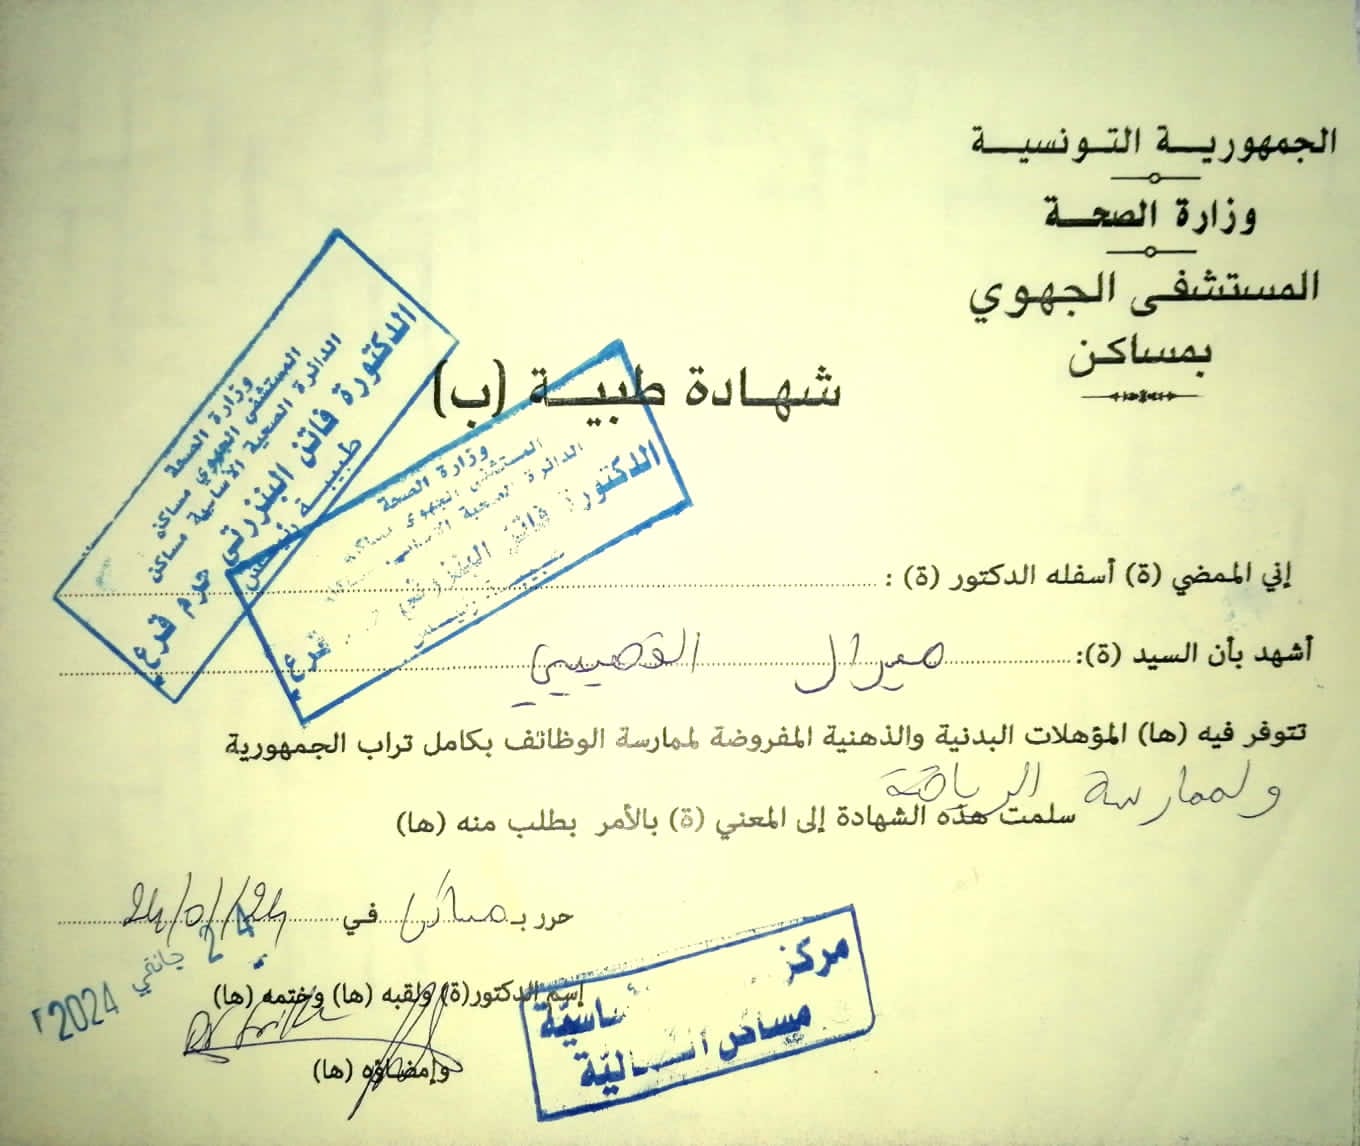 الجمهورية التونسية
وزارة الصحة
المستشفى الجهوي
بمساكن
شهادة طبية (ب)
وزارة الصحة
المستشفى الجهوي مساكن
الدائرة الصحية الأساسية مساكن
الدكتورة فاتن البنزرتي حرم قزع
طبيبة رئيس
وزارة الصحة
المستشفى الجهوي مساكن
الدائرة الصحية الأساسية
الدكتورة فاتن البنزرتي قزع
طبيبة رئيس
إني الممضي (ة) أسفله الدكتور (ة) :
أشهد بأن السيد (ة): ميرال القصيبي
تتوفر فيه (ها) المؤهلات البدنية والذهنية المفروضة لممارسة الوظائف بكامل تراب الجمهورية
ولممارسة الرياضة
سلمت هذه الشهادة إلى المعني (ة) بالأمر بطلب منه (ها)
حرر بـ مساكن في 24/01/24
24 جانفي 2024
إسم الدكتور(ة) ولقبه (ها) وختمه (ها)
وإمضاؤه (ها)
مركز
مساكن الشمالية